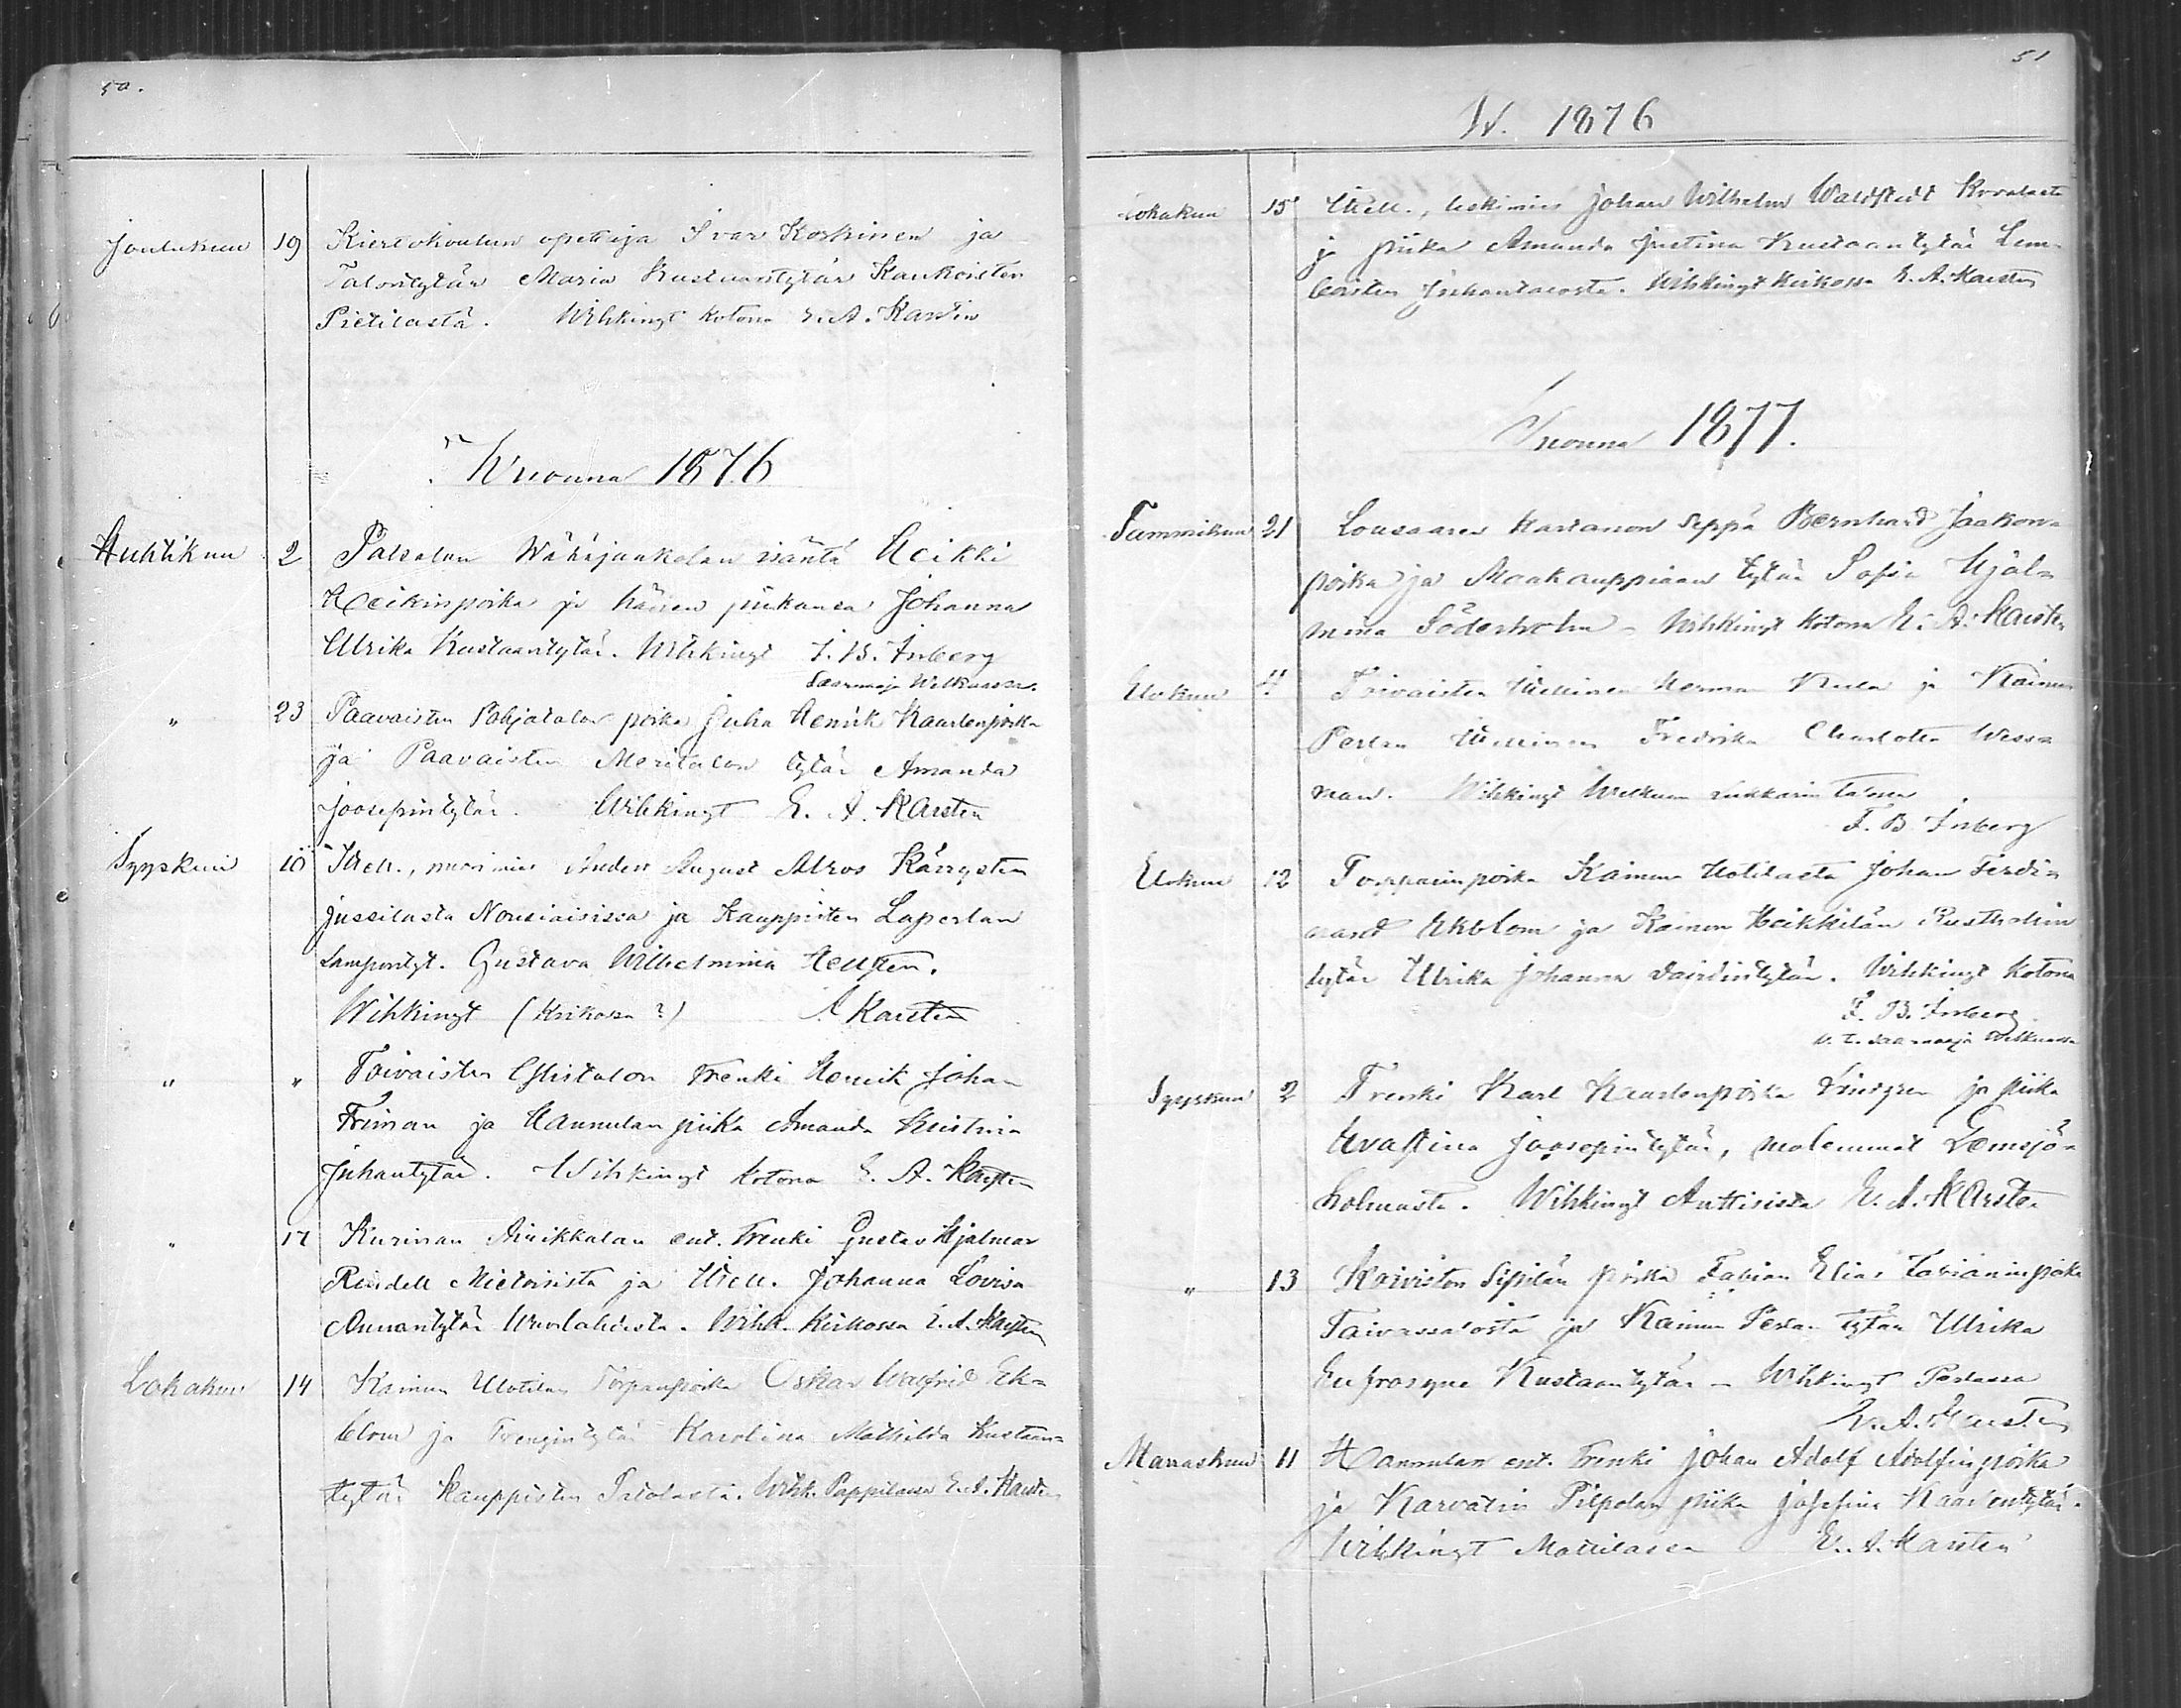 50.
Joulukuun 19 Kiertokoulun opettaja Ivar Koskinen ja
Talontytär Maria Kustaantytär Kaukoisten
Pietilästä. Wihkinyt kotona E. A. Karstén
Wuonna 1876
Huhtikuun 2 Palsalan Wähäjaakolan isäntä Heikki
Heikinpoika ja hänen piikansa Johanna
Ulrika Kustaantytär. Wihkinyt F. B. Inberg
Saarnaaja Welkuassa.
" 23 Paavaisten Pohjatalon poika Juha Henrik Kaarlenpoika
ja Paavaisten Meritalon tytär Amanda
Joosepintytär. Wihkinyt E. A. Karsten
Syyskuu 10 Itell., muori mies Anders August Alros Kärrysten
Jussilasta Nousiaisissa ja Kauppisten Laperlan
Lamporitgt. Gustava Wilhelmina Hellsten.
Wihkinyt (Kirkossa?) A Karsten
" " Toivaisten Ylistalon Trenki Henrik Johan
Friman ja Hannulan piika Amanda Kristina
Juhantytär. Wihkinyt kotona E. A. Karsten
" 17 Kurinan Ainikkalan ent. Trenki Gustav Hjalmar
Rindell Mietoisista ja Itell. Johanna Lovisa
Annantytär . Wihk. Kirkossa E. A. Karsten
Lokakuu 14 Kaimun Uotilan Torpanpoika Oskar Walfrid Ek=
blom ja Trengintytär Karolina Mathilda Kustaan=
tytär Kauppisten . Wihk. Pappilassa E. A. Karsten
51
W. 1876
Lokakuu 15 Itell., Johan Wilhelm Waldstedt
ja piika Amanda Justina Kustaantytär Lem=
boisten Juhantalosta. Wihkinyt Kirkossa E. A. Karsten
Wuonna 1877.
Tammikuu 21 Lousaaren Kartanon Seppä Bernhard Jaakon=
poika ja Maakauppiaan tytär Sofia Hjäl=
mina Söderholm – Wihkinyt kotona E. A. Karsten
Elokuu 4 Toivaisten Itellinen Herman ja Kaimun
Perlan Itellinen Fredrika Charlotta Wess=
man. Wihkinyt Welkuan lukkarin talossa
F. B. Inberg
Elokuu 12 Torpparinpoika Kaimun Uotilasta Johan Ferdi=
nand Ekblom ja Kaimon Heikkilän Rusthollin
tytär Ulrika Johanna Davidintytär. Wihkinyt kotona
F. B. Inberg
v. t. saarnaaja Welkuassa
Syyskuu 2 Trenki Karl Kaarlenpoika ja piika
Evastina Joosepintytär, molemmat Lemsjö=
holmasta. Wihkinyt Anttisissa E. A. Karsten
" 13 Koiviston Sipilän poika Fabian Elias Fabianinpoika
Taivassalosta ja Kaimun Perlan tytär Ulrika
Eufrosyne Kustaantytär – Wihkinyt Perlassa
E. A. Karsten
Marraskuu 11 Hannulan ent. Trenki Johan Adolf Adolfinpoika
ja Karvatin Piipolan piika Josefina Kaarlentytär.
Wihkinyt Mattilassa E. A. Karsten